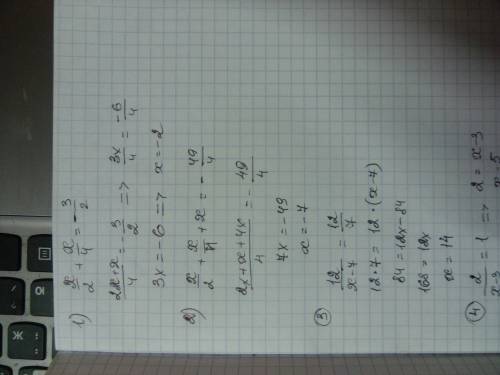 1) x/2 + x/4 = -3/2
2x+x/4 = -3/2 => 3x/4 = -6/4
3x = -6 => x = -2
2) x/2 + x/4 + x = -49/4
2x+x+4x/4 = -49/4
7x = -49
x = -7
3) 12/x-7 = 12/7
12·7 = 12·(x-7)
84 = 12x-84
168 = 12x
x = 14
4) 2/x-3 = 1 => 2 = x-3
x = 5
Ж